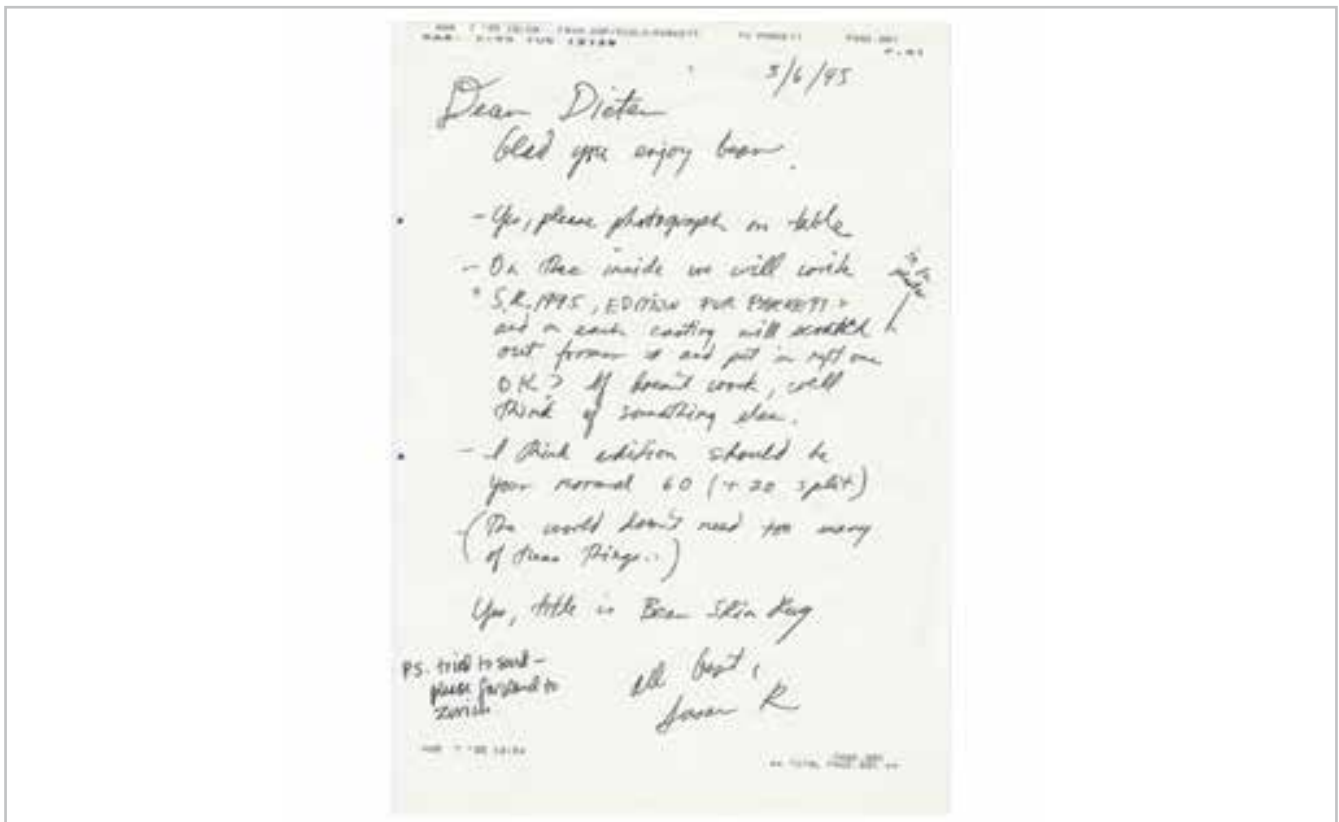 3/6/95
Dear Dieter
Glad you enjoy bear.
- Yes, please photograph on table
- On the inside we will write
"S.R. 1995, EDITION FOR PARKETT"
and on each casting will scratch
out former # and put in right one
OK? If doesn't work, we'll
think of something else.
- I think edition should be
your normal 60 (+ 20 split)
(The world doesn't need too many
of these things..)
Yes, title is Bear Skin Rug
All best,
Susan R
P.S. tried to send -
please forward to
Zurich